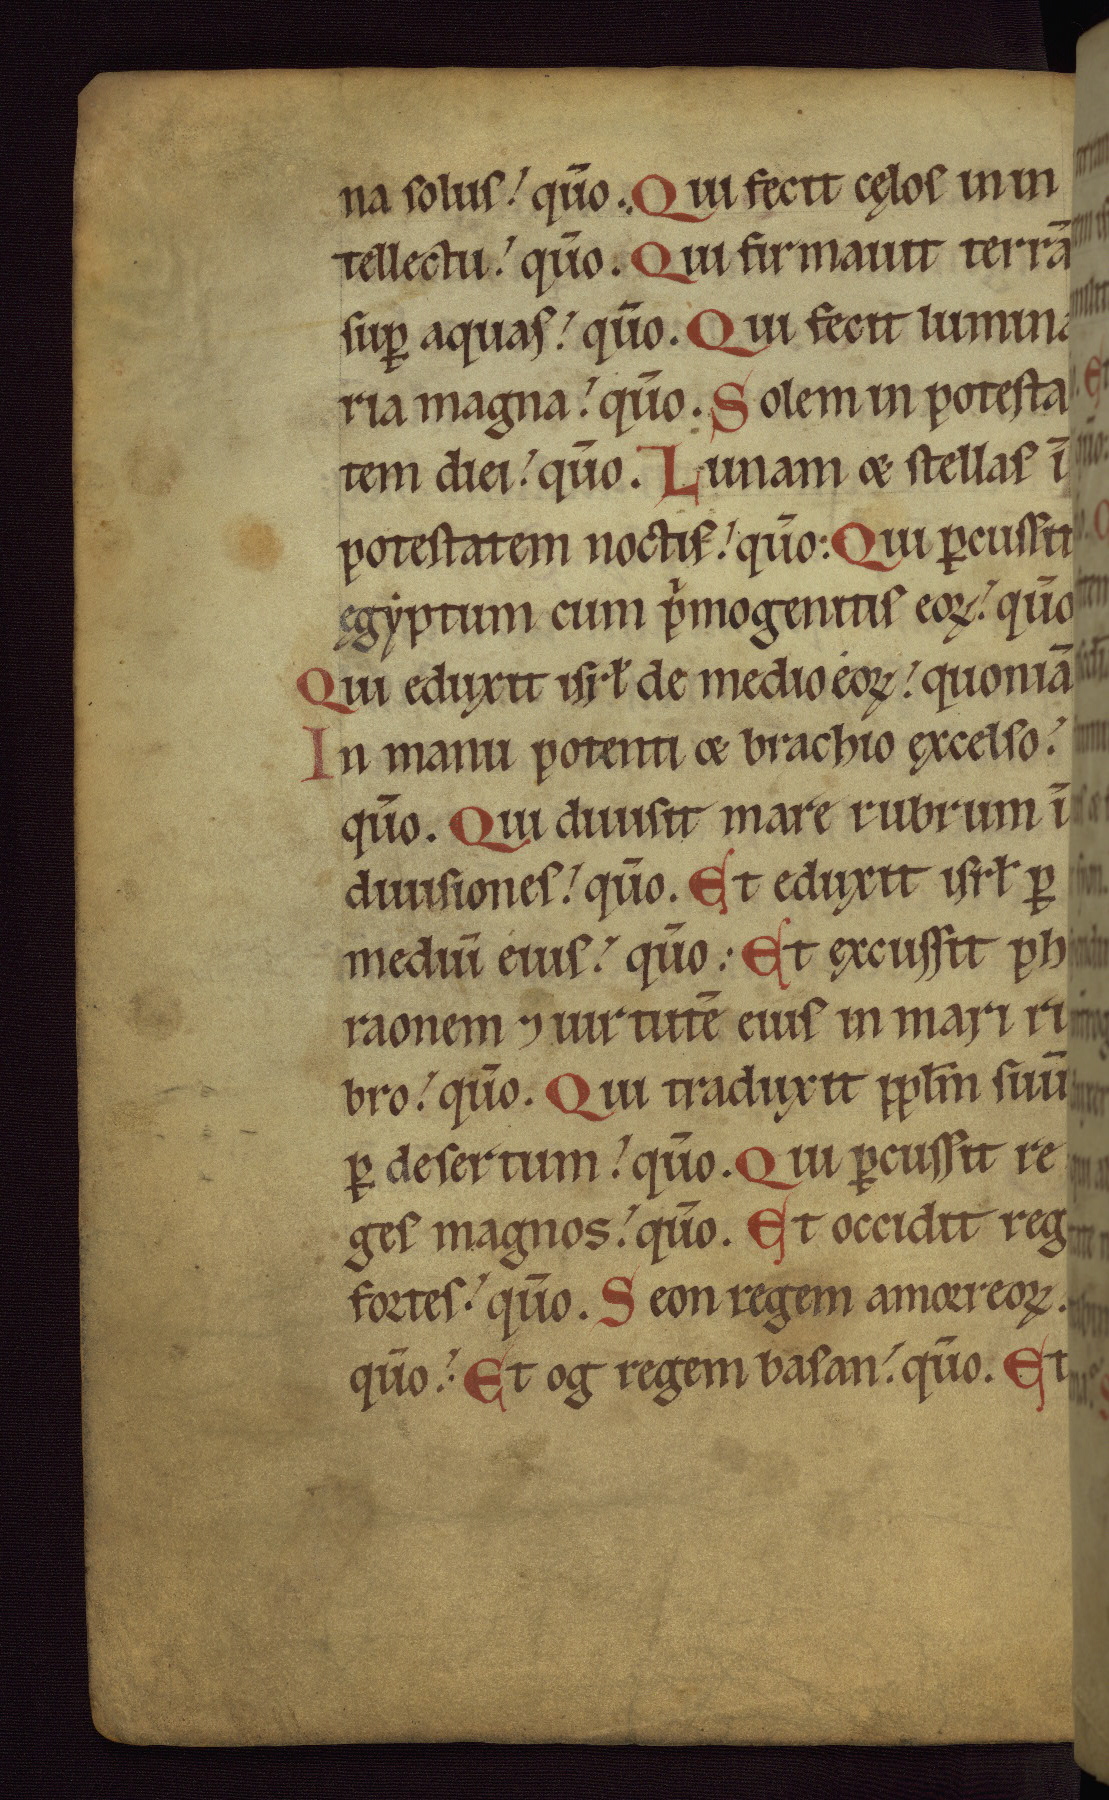 na solus! qūo. Qui fecit cęlos in in
tellectu! qūo. Qui firmauit terrā
suꝑ aquas! qūo. Qui fecit lumina
ria magna! qūo. Solem in potesta
tem diei! qūo. Lunam & stellas ī
potestatem noctis! qūo: Qui ꝑcussit
ęgyptum cum pͥmogenitis eoꝝ! qūo
Qui eduxit isrł de medio eoꝝ! quoniā
In manu potenti & brachio excelso!
qūo. Qui diuisit mare rubrum ī
diuisiones! qūo. Et eduxit isrł ꝑ
mediū eius! qūo: Et excussit ph
raonem ⁊ uirtutē eius in mari ru
bro! qūo. Qui traduxit ppłm suū
ꝑ desertum! qūo. Qui ꝑcussit re
ges magnos! qūo. Et occidit reg
fortes! qūo. Seon regem amorreoꝝ.
qūo! Et og regem basan! qūo. Et